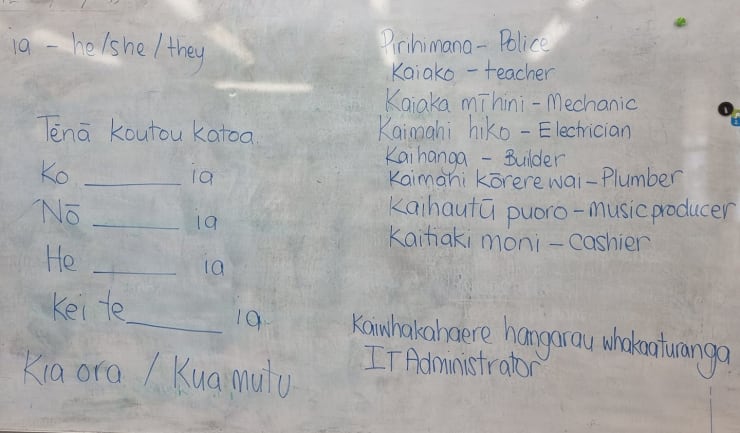 ia - he/she/they
Tēnā koutou katoa.
Ko ______ ia
Nō ______ ia
He ______ ia
Kei te ______ ia
Kia ora / Kua mutu
Pirihimana - Police
Kaiako - teacher
Kaiaka mīhini - Mechanic
Kaimahi hiko - Electrician
Kaihanga - Builder
Kaimahi kōrere wai - Plumber
Kaihautū puoro - music producer
Kaitiaki moni - Cashier
Kaiwhakahaere hangarau whakaaturanga
IT Administrator